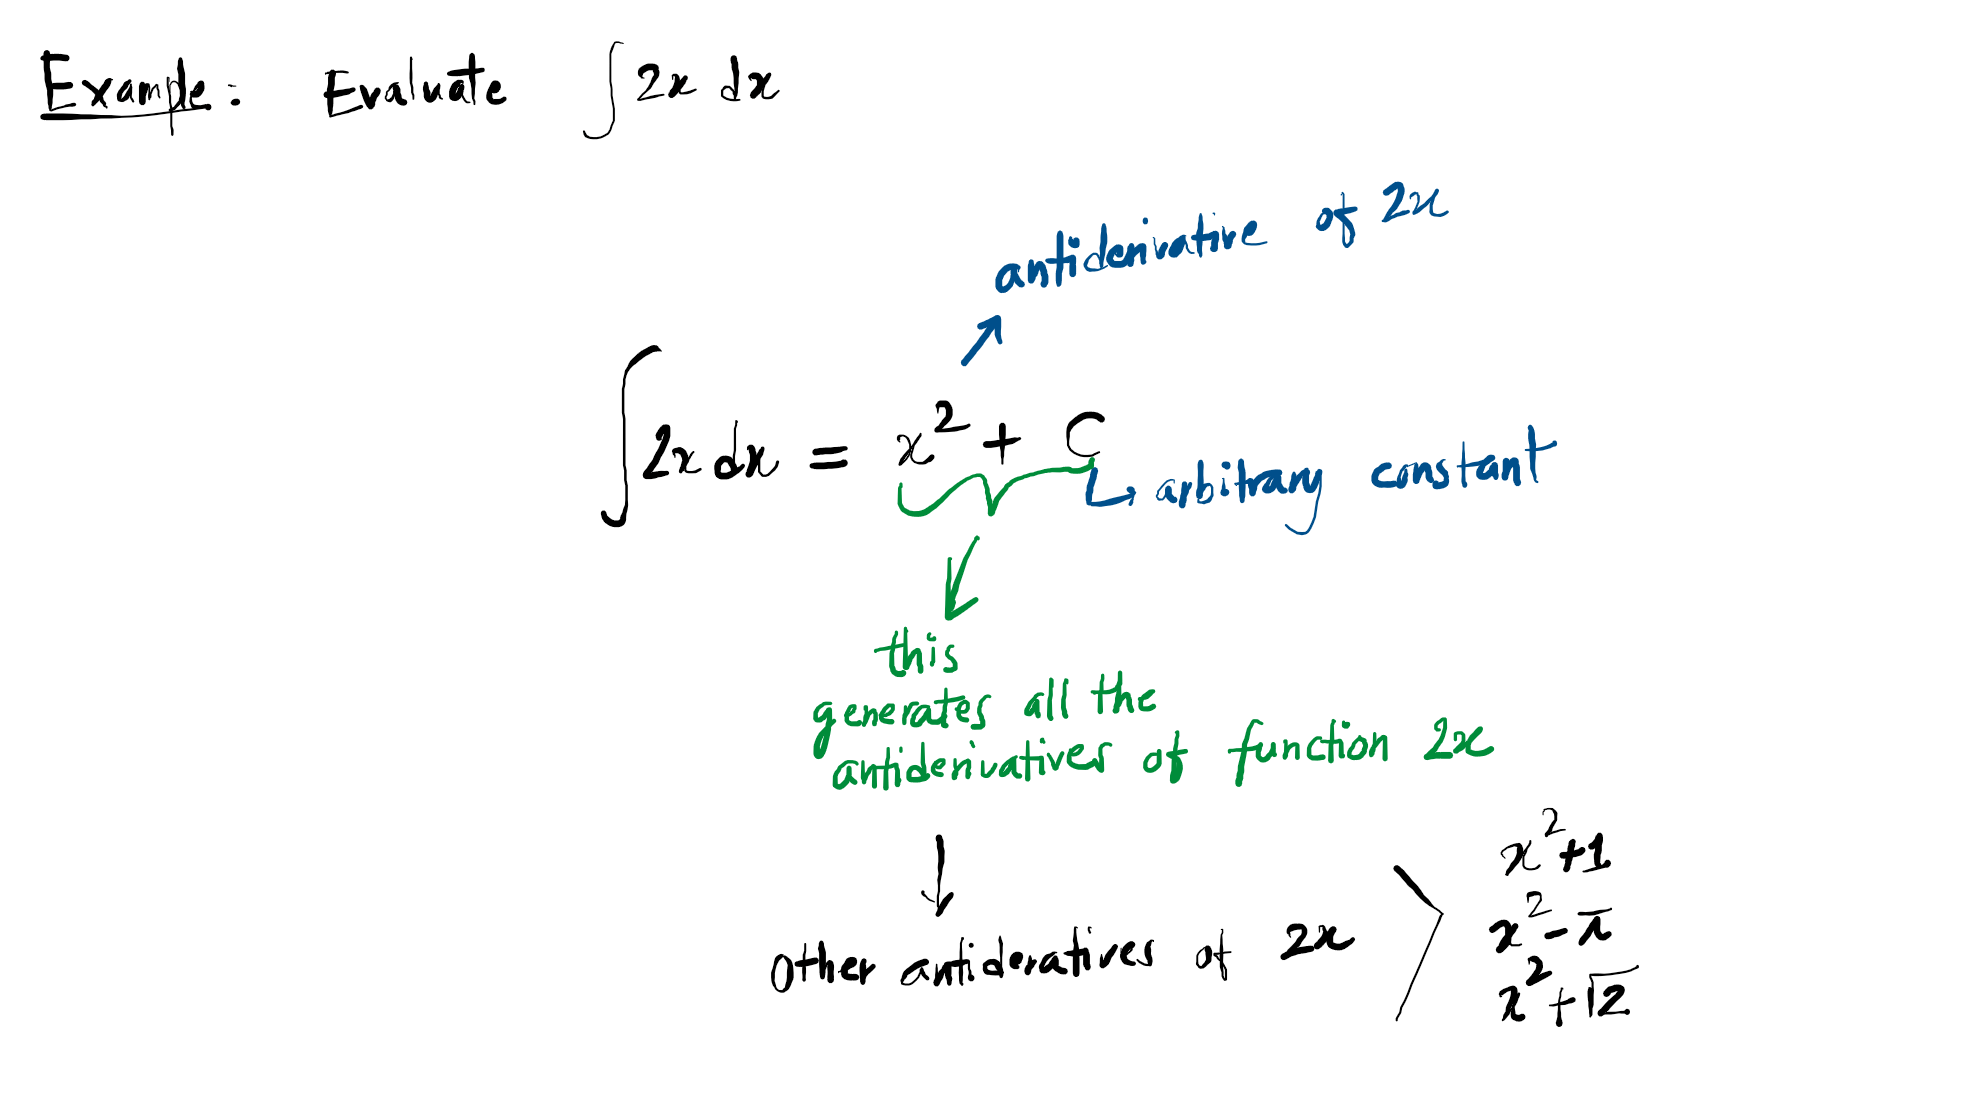 Example: Evaluate ∫ 2x dx
antiderivative of 2x
∫ 2x dx = x² + C
arbitrary constant
this
generates all the
antiderivatives of function 2x
x²+1
other antideratives of 2x
x²-π
x²+√2